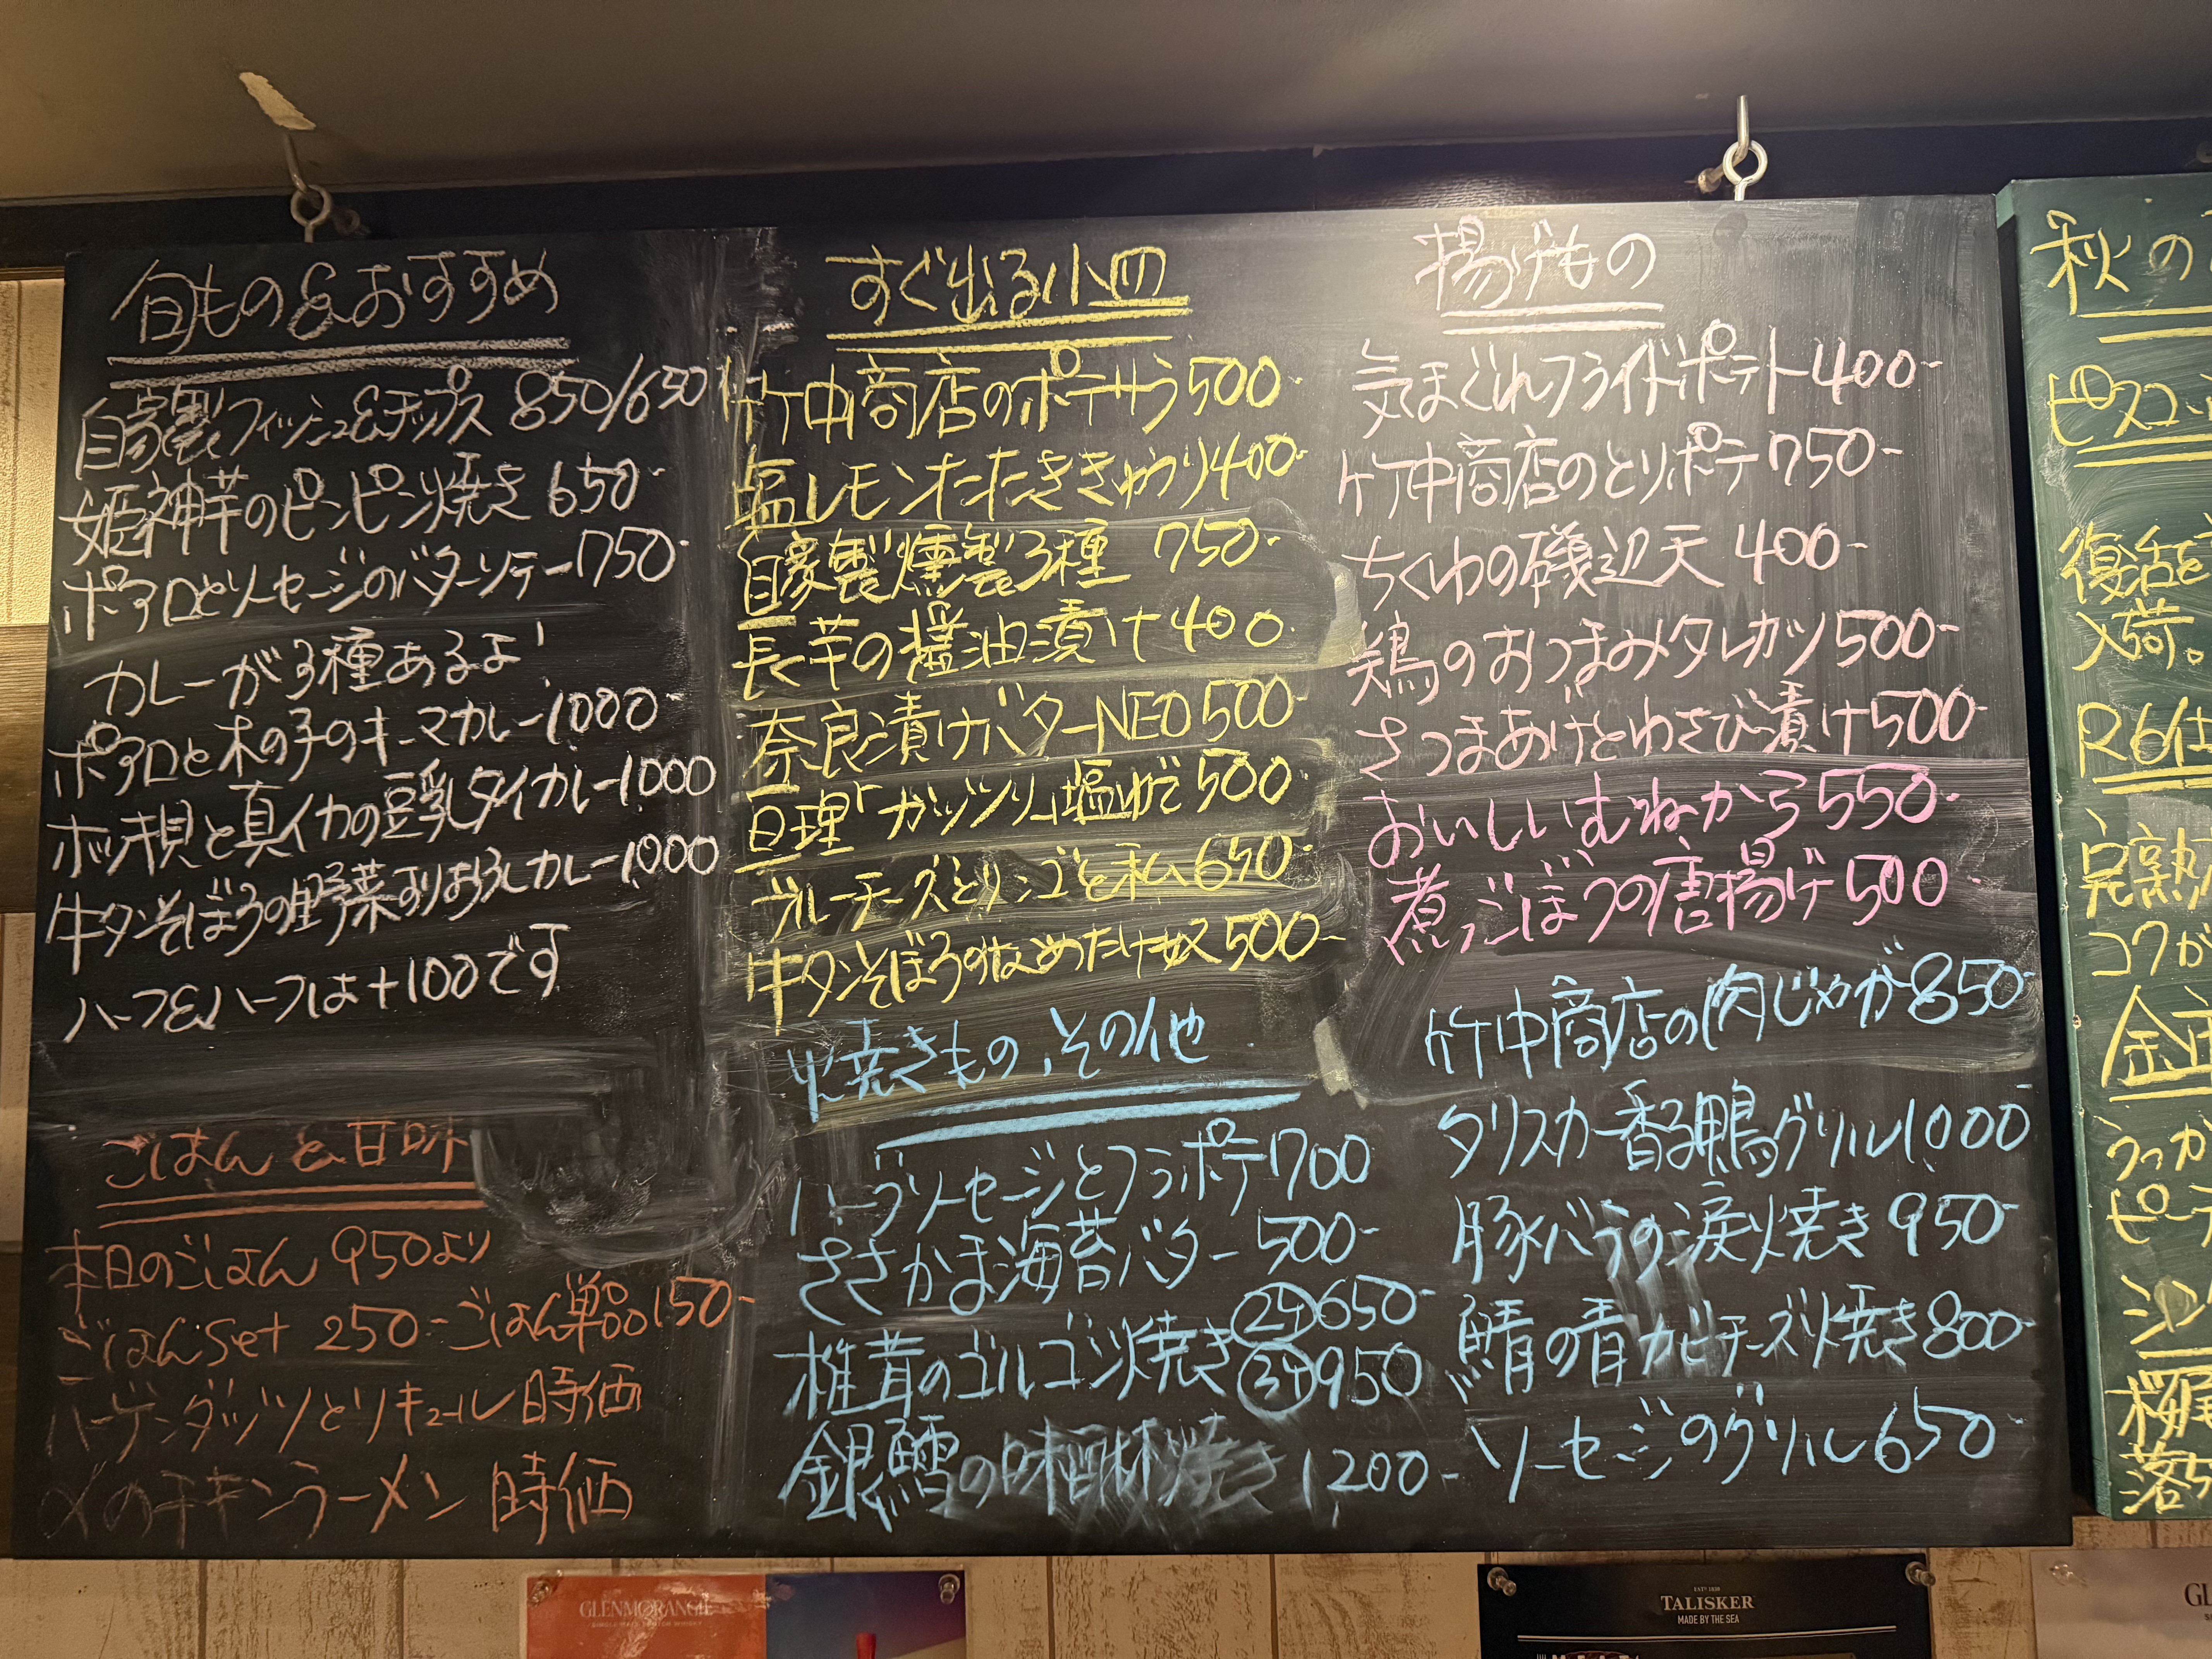 旬もの&おすすめ
自家製フィッシュ&チップス 850/650
姫神芋のピンピン焼き 650-
ポアロとソーセージのバターソテー750-
カレーが3種あるよ!
ポアロと木の子のキーマカレー1000-
ホッキ貝と真イカの豆乳タイカレー1000
牛タンそぼろの野菜すりおろしカレー1000
ハーフ&ハーフは+100です
ごはんと甘味
本日のごはん 950より
ごはんset 250- ごはん単品150-
ハーゲンダッツとリキュール 時価
〆のチキンラーメン 時価
すぐ出る小皿
竹中商店のポテサラ500-
塩レモンたたききゅうり400-
自家製燻製3種 750-
長芋の醤油漬け400-
奈良漬けバターNEO500-
亘理「ガッツリ」塩ゆで500-
ブルーチーズとリンゴと私650-
牛タンそぼろのなめたけ奴500-
焼きもの、その他
ハーブソーセージとフラポテ700
ささかま海苔バター 500-
椎茸のゴルゴン焼き
650-
950
銀鱈の味醂焼き 1200-
揚げもの
気まぐれフライドポテト400-
竹中商店のとりポテ750-
ちくわの磯辺天 400-
鶏のおつまみタレカツ500-
さつまあげとわさび漬け500-
おいしいむねから550-
煮ごぼうの唐揚げ500
竹中商店の肉じゃが850-
タリスカー香る鴨グリル1000-
豚バラの涙焼き 950-
鯖の青カビチーズ焼き800-
ソーセージのグリル650-
秋の
ピスコ
復活
入荷。
R6
完熟
コクが
金
うっか
ピー
シン
桜尾
落ち
GLENMORANGIE
EST? 1830
TALISKER
MADE BY THE SEA
GL